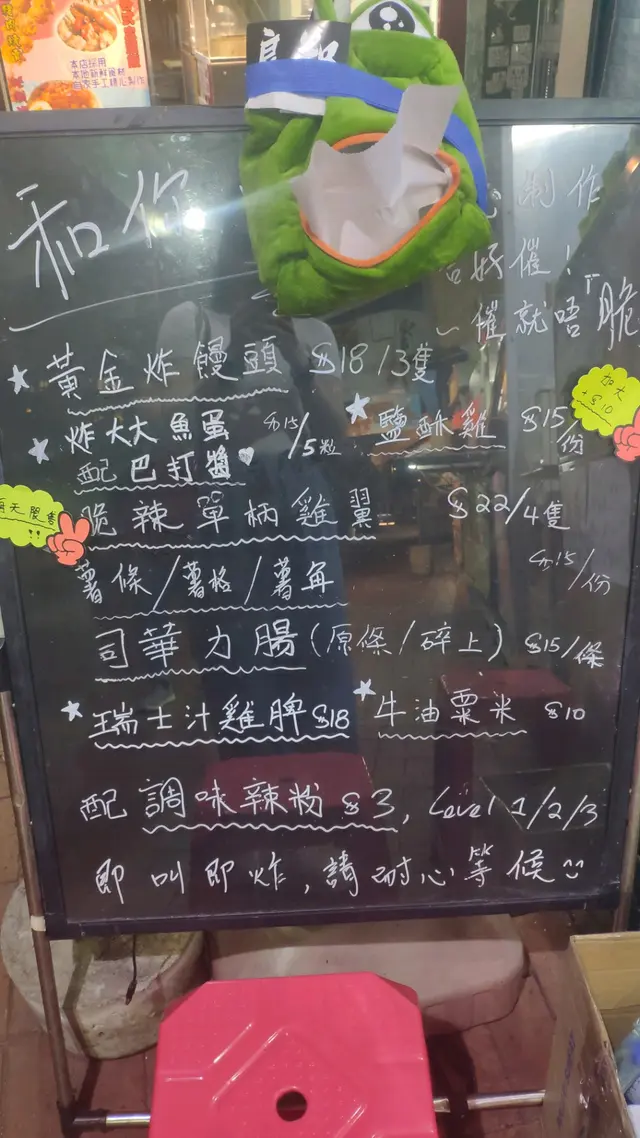 本店採用
本地新鮮食材
自家手工精心製作
和你
制作
好催！
催就唔「脆
黃金炸饅頭 $18/3隻
加大
+$10
炸大大魚蛋 $15/5粒
配巴打醬
鹽酥雞 $15/份
每天限售!!
脆辣單柄雞翼 $22/4隻
薯條/薯格/薯角 $15/份
司華力腸(原條/碎上) $15/條
瑞士汁雞脾$18 牛油粟米 $10
配調味辣粉$3, Level 1/2/3
即叫即炸,請耐心等候